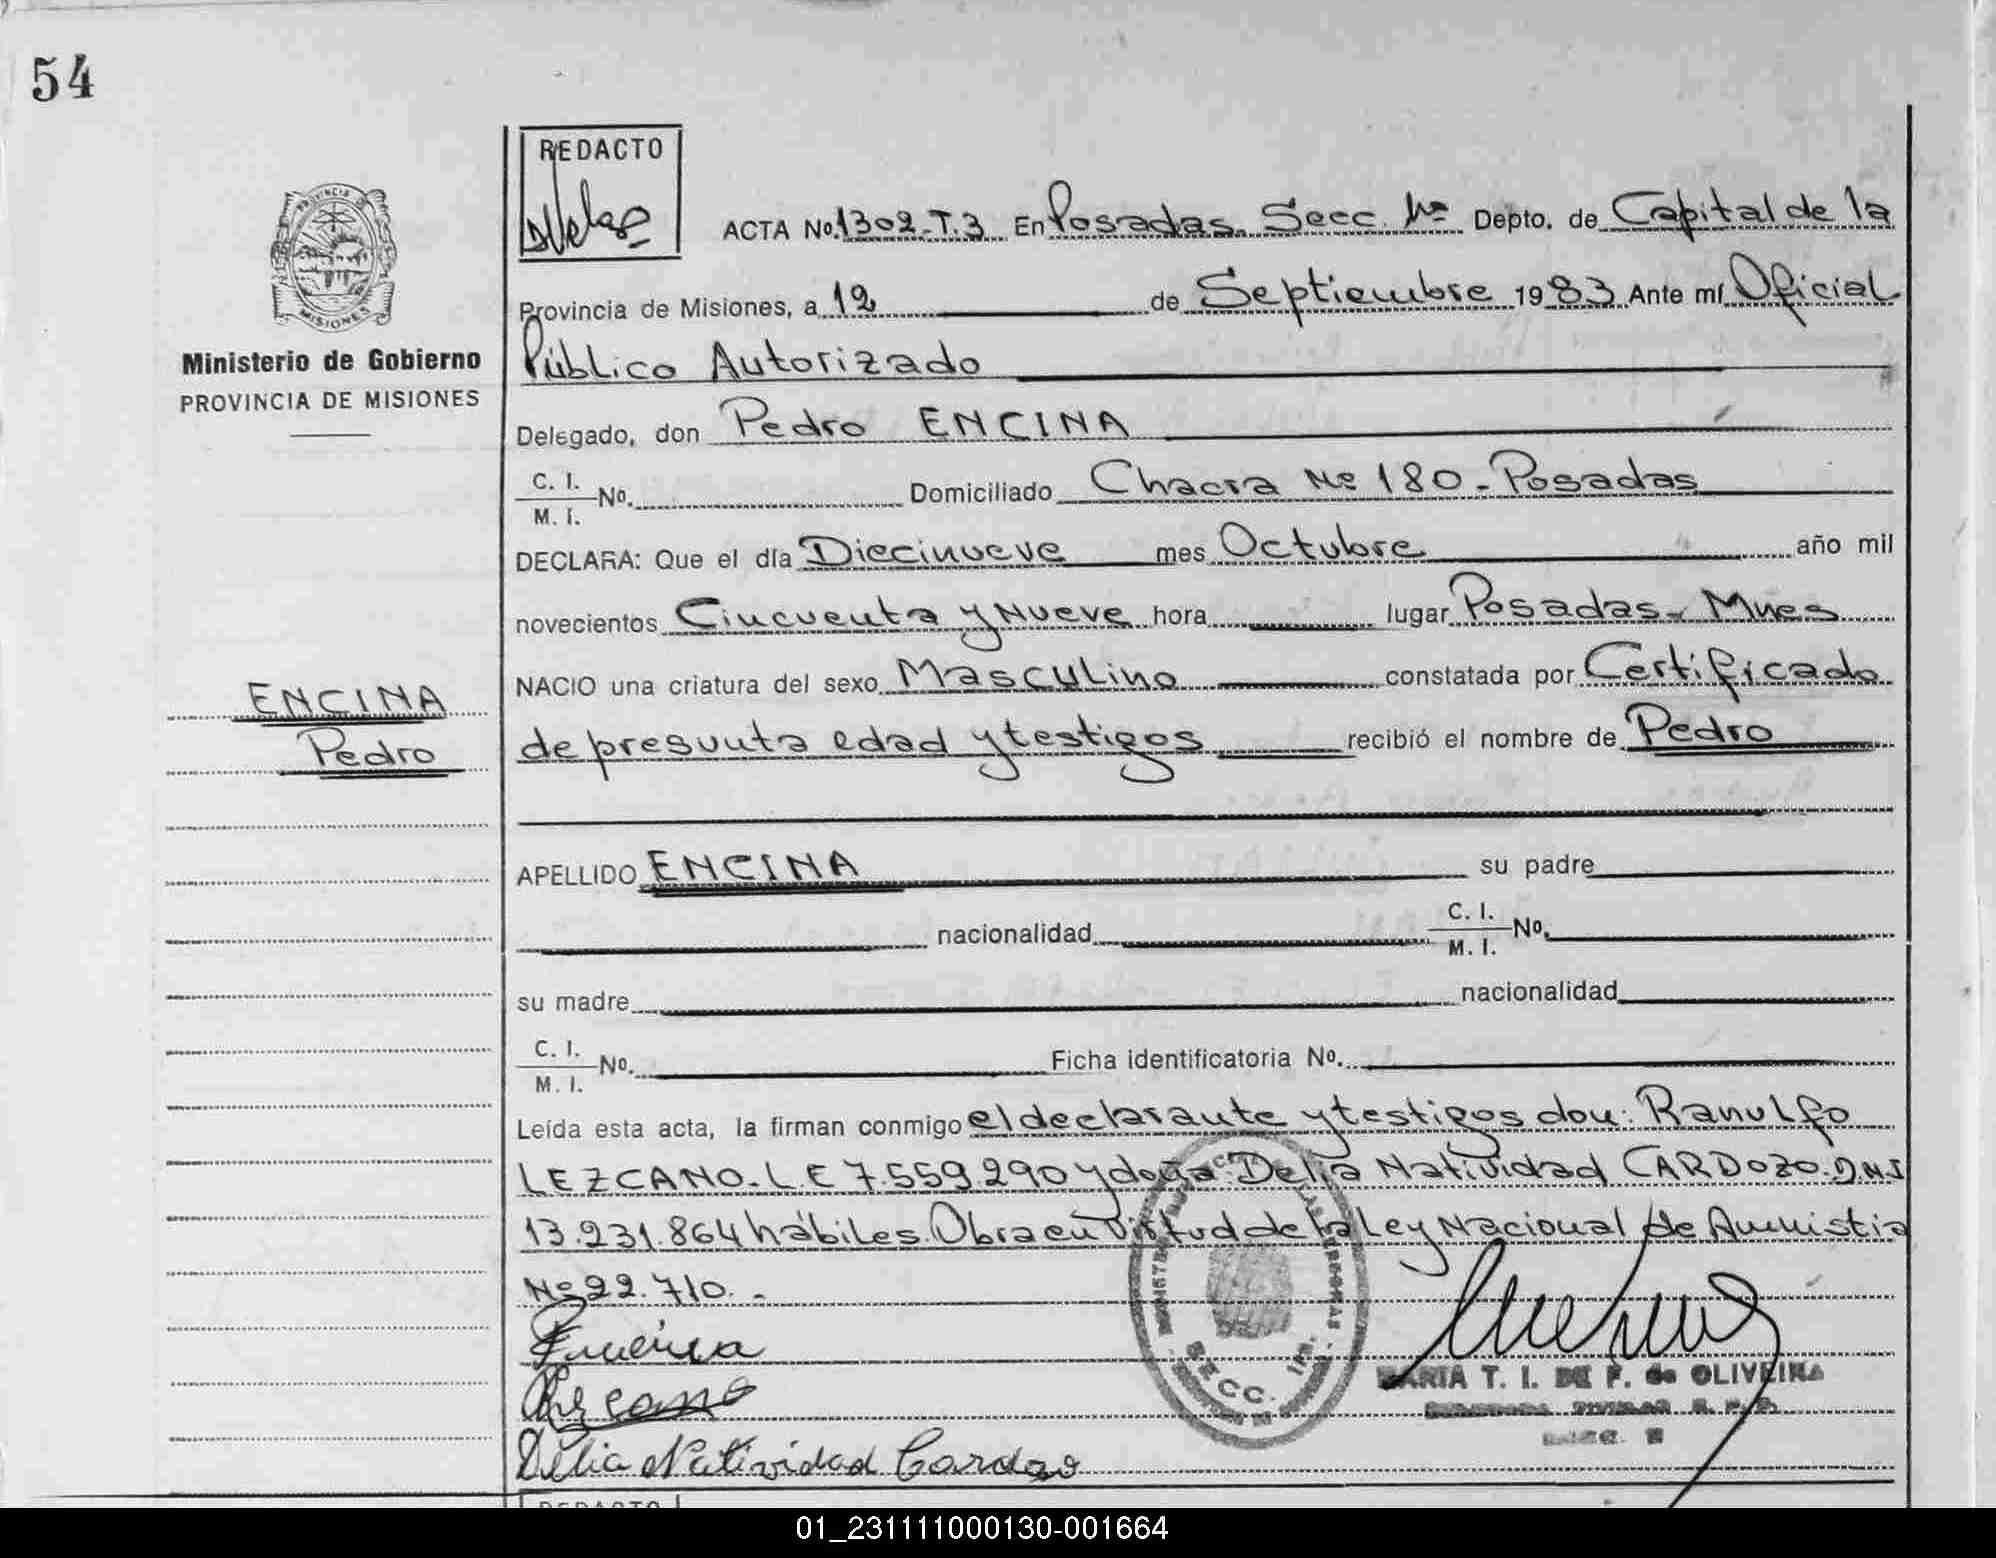 54
REDACTO
ACTA No. 1302-T.3 En Posadas, Secc. 1ra Depto. de Capital de la
Provincia de Misiones, a 12 de Septiembre 1983 Ante mí Oficial
Público Autorizado
PROVINCIA DE
MISIONES
Ministerio de Gobierno
PROVINCIA DE MISIONES
Delegado, don Pedro ENCINA
C. I.
M. I. No. Domiciliado Chacra Nº 180 - Posadas
DECLARA: Que el día Diecinueve mes Octubre año mil
novecientos Cincuenta y Nueve hora lugar Posadas - Mnes
ENCINA
Pedro
NACIO una criatura del sexo Masculino constatada por Certificado
de presunta edad y testigos recibió el nombre de Pedro
APELLIDO ENCINA su padre
nacionalidad C. I.
M. I. No.
su madre nacionalidad
C. I.
M. I. No. Ficha identificatoria No.
Leída esta acta, la firman conmigo el declarante y testigos don: Ranulfo
LEZCANO. L.E 7.559.290 y doña: Delia Natividad CARDOZO. D.N.I
13.231.864 hábiles. Obra en virtud de la Ley Nacional de Amnistia
Nº 22.710. -
Delia Natividad Cardozo
SECC. 1ra.
MARIA T. I. DE F. de OLIVEIRA
REDACTO
01_231111000130-001664